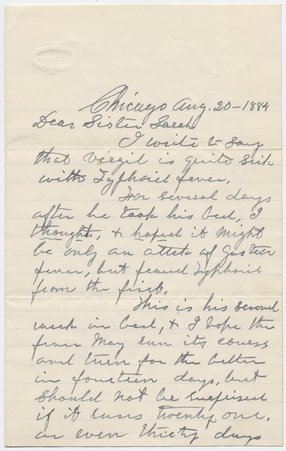 Chicago Aug. 20-1884
Dear Sister Sarah
I write to say
that Virgil is quite sick
with Typhoid fever.
For several days
after he took his bed, I
thought, & hoped it might
be only an attack of
fever, but feared typhoid
from the first.
This is his second
week in bed, & I hope the
fever may run its course
and turn for the better
in fourteen days, but
should not be surprised
if it runs twenty one,
or even thirty days